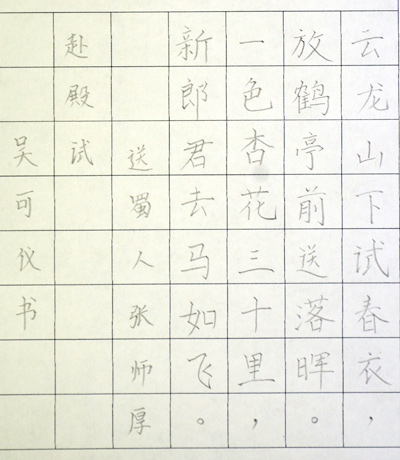 云龙山下试春衣，
放鹤亭前送落晖。
一色杏花三十里，
新郎君去马如飞。
送蜀人张师厚
赴殿试
吴可仪书